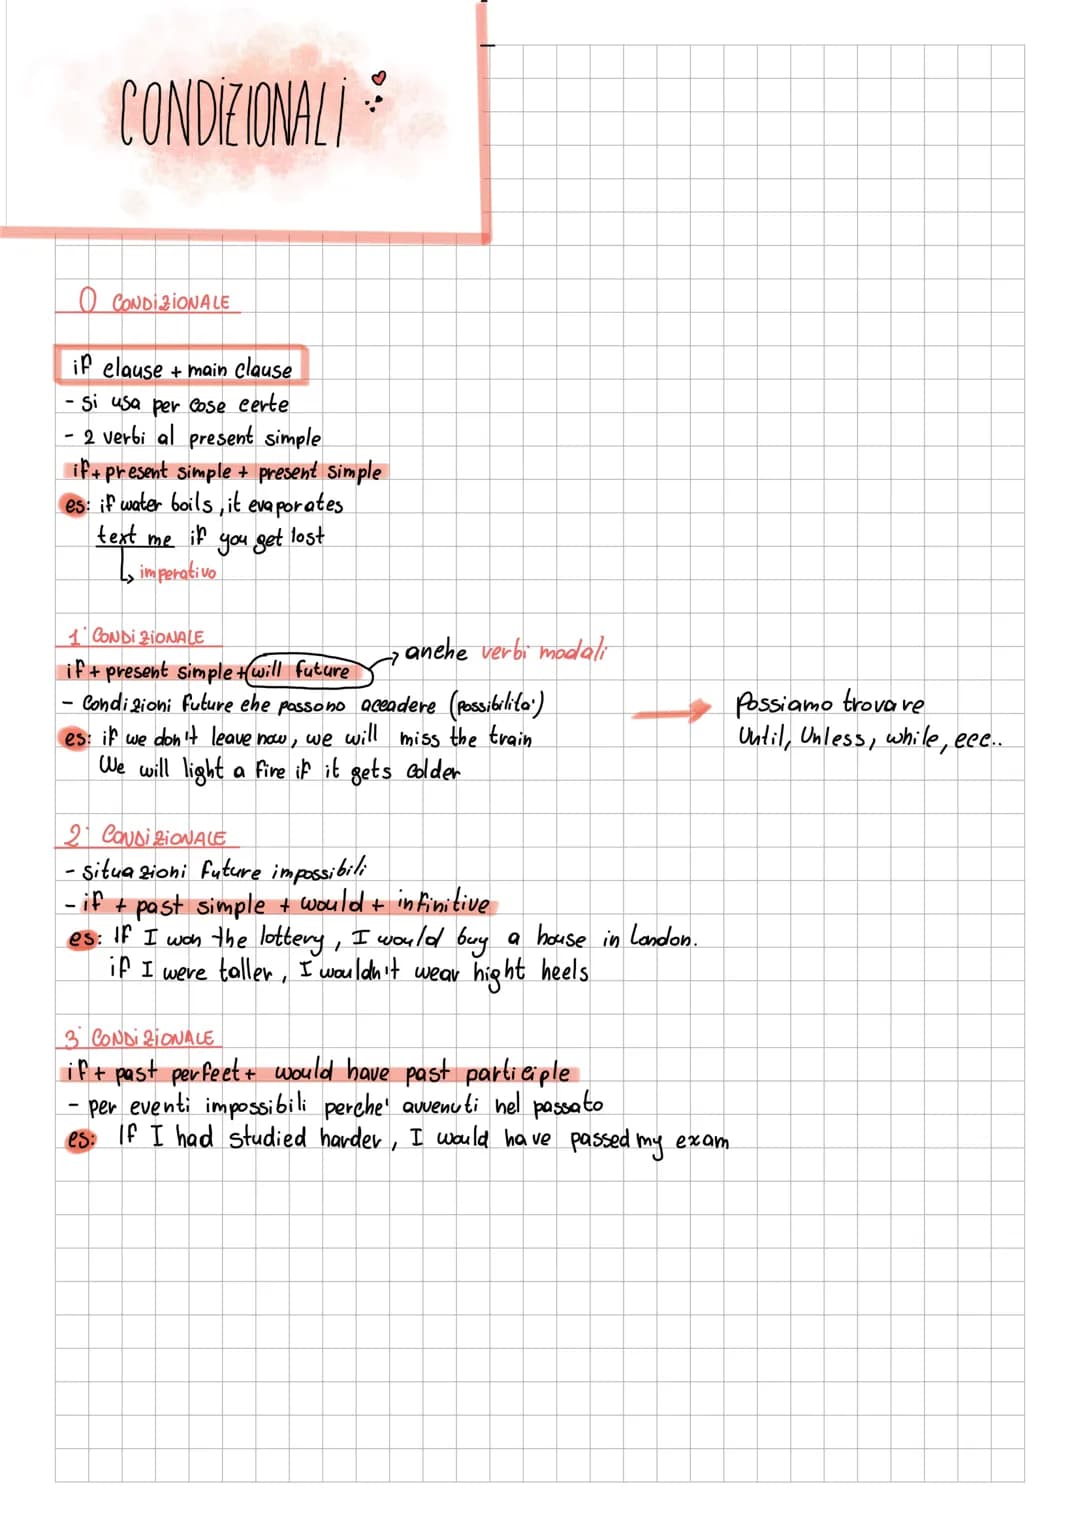 CONDIZIONALI
0 CONDIZIONALE
if clause + main clause
- si usa per cose certe
- 2 verbi al present simple
if + present simple + present simple
es: if water boils, it evaporates
text me if you get lost
↳ imperativo
1° CONDIZIONALE
if + present simple + will future → anche verbi modali
- Condizioni future che possono accadere (possibilita') → Possiamo trovare
es: if we don't leave now, we will miss the train Until, Unless, while, ecc..
We will light a fire if it gets colder
2° CONDIZIONALE
- situazioni future impossibili
- if + past simple + would + infinitive
es: If I won the lottery, I would buy a house in London.
if I were taller, I wouldn't wear hight heels
3° CONDIZIONALE
if + past perfect + would have past participle
- per eventi impossibili perche' avvenuti nel passato
es: If I had studied harder, I would have passed my exam